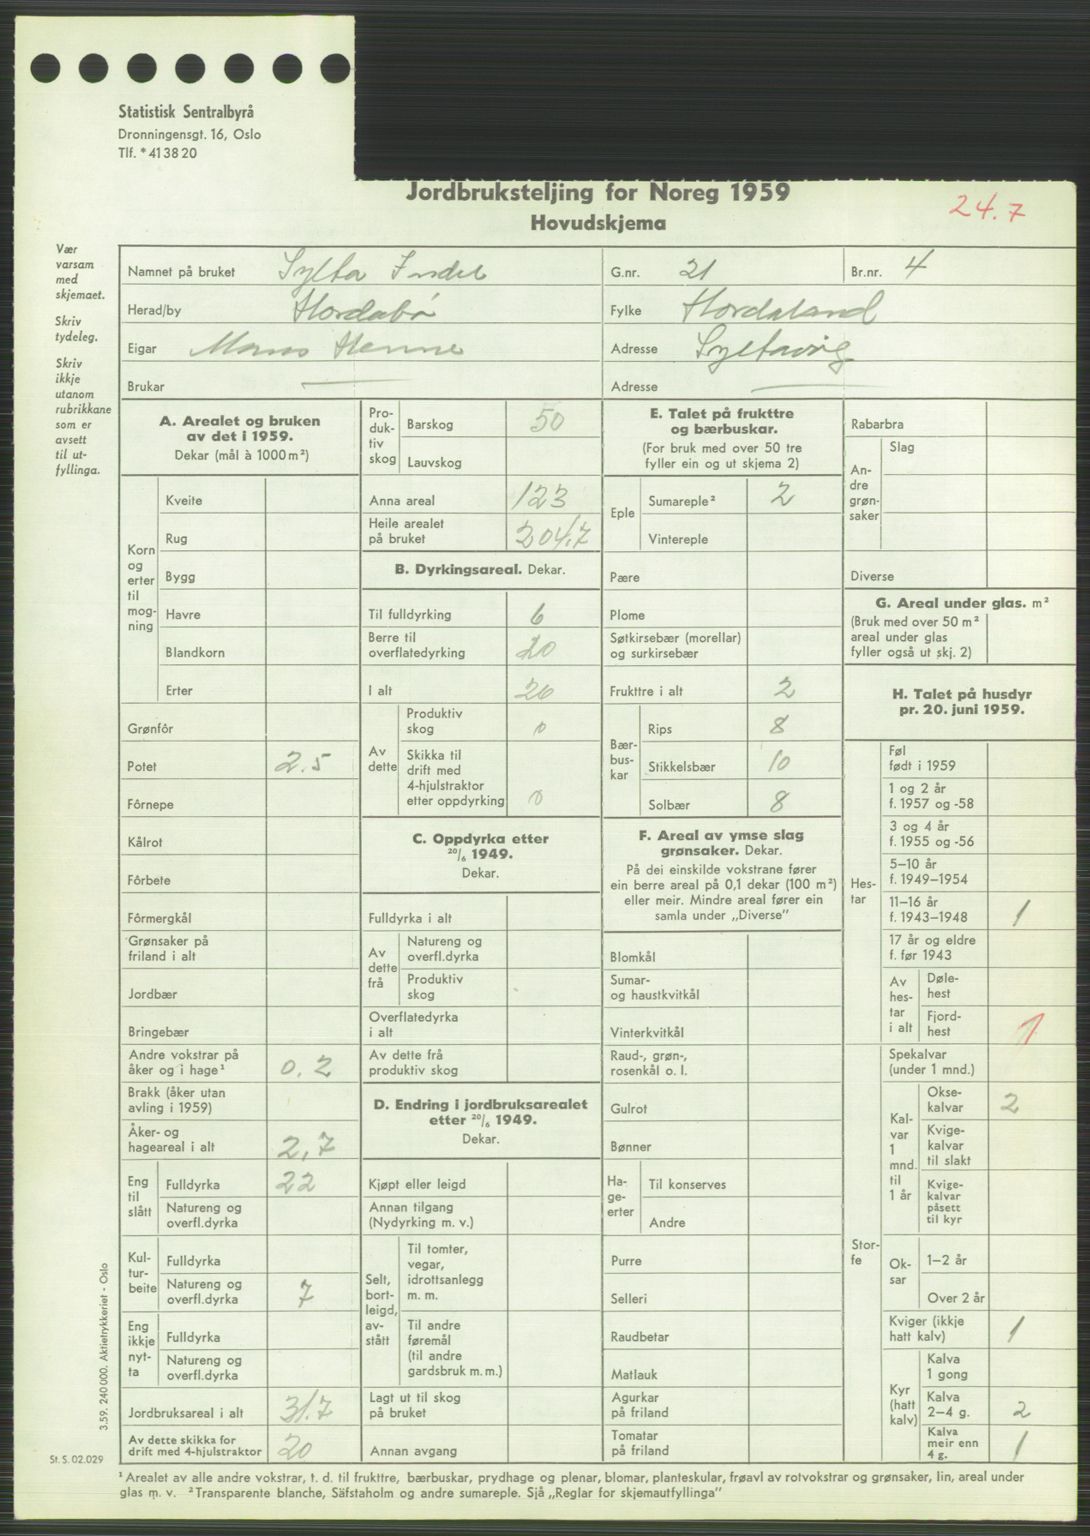 Statistisk Sentralbyrå
Dronningensgt. 16, Oslo
Tlf. * 41 38 20
Jordbruksteljing for Noreg 1959
Hovudskjema
24.7
Vær varsam med skjemaet.
Skriv tydeleg.
Skriv ikkje utanom rubrikkane som er avsett til ut-fyllinga.
Namnet på bruket Sylta Indre
G.nr. 21
Br.nr. 4
Herad/by Hordabø
Fylke Hordaland
Eigar Mons Henne
Adresse Syltavåg
Brukar —
Adresse —
A. Arealet og bruken av det i 1959.
Dekar (mål à 1000 m²)
Korn og erter til mog-ning
Kveite
Rug
Bygg
Havre
Blandkorn
Erter
Grønfôr
Potet 2.5
Fôrnepe
Kålrot
Fôrbete
Fôrmergkål
Grønsaker på friland i alt
Jordbær
Bringebær
Andre vokstrar på åker og i hage¹ 0.2
Brakk (åker utan avling i 1959)
Åker- og hageareal i alt 2,7
Eng til slått
Fulldyrka 22
Natureng og overfl.dyrka
Kul-tur-beite
Fulldyrka
Natureng og overfl.dyrka 7
Eng ikkje nyt-ta
Fulldyrka
Natureng og overfl.dyrka
Jordbruksareal i alt 31.7
Av dette skikka for drift med 4-hjulstraktor 20
Pro-duk-tiv skog
Barskog 50
Lauvskog
Anna areal 123
Heile arealet på bruket 204,7
B. Dyrkingsareal. Dekar.
Til fulldyrking 6
Berre til overflatedyrking 20
I alt 26
Av dette
Produktiv skog 0
Skikka til drift med 4-hjulstraktor etter oppdyrking 0
C. Oppdyrka etter 20/6 1949.
Dekar.
Fulldyrka i alt
Av dette frå
Natureng og overfl.dyrka
Produktiv skog
Overflatedyrka i alt
Av dette frå produktiv skog
D. Endring i jordbruksarealet etter 20/6 1949.
Dekar.
Kjøpt eller leigd
Annan tilgang (Nydyrking m. v.)
Selt, bort-leigd, av-stått
Til tomter, vegar, idrottsanlegg m. m.
Til andre føremål (til andre gardsbruk m. m.)
Lagt ut til skog på bruket
Annan avgang
E. Talet på frukttre og bærbuskar.
(For bruk med over 50 tre fyller ein og ut skjema 2)
Eple
Sumareple² 2
Vintereple
Pære
Plome
Søtkirsebær (morellar) og surkirsebær
Frukttre i alt 2
Bær-bus-kar
Rips 8
Stikkelsbær 10
Solbær 8
F. Areal av ymse slag grønsaker. Dekar.
På dei einskilde vokstrane fører ein berre areal på 0,1 dekar (100 m²) eller meir. Mindre areal fører ein samla under „Diverse”
Blomkål
Sumar- og haustkvitkål
Vinterkvitkål
Raud-, grøn-, rosenkål o. l.
Gulrot
Bønner
Ha-ge-erter
Til konserves
Andre
Purre
Selleri
Raudbetar
Matlauk
Agurkar på friland
Tomatar på friland
Rabarbra
An-dre grøn-saker
Slag
Diverse
G. Areal under glas. m²
(Bruk med over 50 m² areal under glas fyller også ut skj. 2)
H. Talet på husdyr pr. 20. juni 1959.
Hes-tar
Føl født i 1959
1 og 2 år f. 1957 og -58
3 og 4 år f. 1955 og -56
5–10 år f. 1949–1954
11–16 år f. 1943–1948 1
17 år og eldre f. før 1943
Av hes-tar i alt
Døle-hest
Fjord-hest 1
Stor-fe
Spekalvar (under 1 mnd.)
Kal-var 1 mnd. til 1 år
Okse-kalvar 2
Kvige-kalvar til slakt
Kvige-kalvar påsett til kyr
Ok-sar
1–2 år
Over 2 år
Kviger (ikkje hatt kalv) 1
Kyr (hatt kalv)
Kalva 1 gong
Kalva 2–4 g. 2
Kalva meir enn 4 g. 1
3.59. 240 000. Aktietrykkeriet - Oslo
St. S. 02.029
¹ Arealet av alle andre vokstrar, t. d. til frukttre, bærbuskar, prydhage og plenar, blomar, planteskular, frøavl av rotvokstrar og grønsaker, lin, areal under
glas m. v. ² Transparente blanche, Säfstaholm og andre sumareple. Sjå „Reglar for skjemautfyllinga”